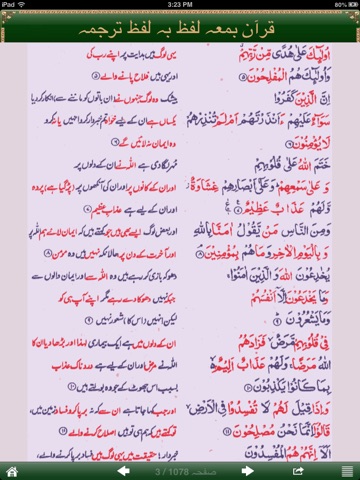 iPad 3:23 PM
قرآن بمعہ لفظ بہ لفظ ترجمہ
اُولٰٓئِكَ عَلٰى هُدًى مِّنْ رَّبِّهِمْ
یہی لوگ ہیں ہدایت پر اپنے رب کی
وَاُولٰٓئِكَ هُمُ الْمُفْلِحُوْنَ
اور یہی ہیں فلاح پانے والے
اِنَّ الَّذِيْنَ كَفَرُوْا
بیشک وہ لوگ جنہوں نے ان باتوں کو ماننے سے انکار کر دیا
سَوَآءٌ عَلَيْهِمْ ءَاَنْذَرْتَهُمْ اَمْ لَمْ تُنْذِرْهُمْ
یکساں ہے ان کے لیے خواہ تم خبردار کرو انہیں یا نہ کرو
لَا يُؤْمِنُوْنَ
وہ ایمان نہ لائیں گے
خَتَمَ اللّٰهُ عَلٰى قُلُوْبِهِمْ
مہر لگا دی ہے اللہ نے ان کے دلوں پر
وَعَلٰى سَمْعِهِمْ وَعَلٰٓى اَبْصَارِهِمْ غِشَاوَةٌ
اور ان کے کانوں پر اور ان کی آنکھوں پر (پڑ گیا ہے) پردہ
وَّلَهُمْ عَذَابٌ عَظِيْمٌ
اور ان کے لیے ہے عذاب عظیم
وَمِنَ النَّاسِ مَنْ يَّقُوْلُ اٰمَنَّا بِاللّٰهِ
اور بعض لوگ ایسے بھی ہیں جو کہتے ہیں کہ ایمان لائے ہم اللہ پر
وَبِالْيَوْمِ الْاٰخِرِ وَمَا هُمْ بِمُؤْمِنِيْنَ
اور آخرت کے دن پر حالانکہ نہیں ہیں وہ مومن
يُخٰدِعُوْنَ اللّٰهَ وَالَّذِيْنَ اٰمَنُوْا
وہ دھوکہ بازی کر رہے ہیں اللہ سے اور ایمان والوں سے
وَمَا يَخْدَعُوْنَ اِلَّآ اَنْفُسَهُمْ
جبکہ نہیں دھوکا دے رہے مگر اپنے آپ ہی کو
وَمَا يَشْعُرُوْنَ
لیکن انہیں اس کا شعور نہیں
فِىْ قُلُوْبِهِمْ مَّرَضٌ فَزَادَهُمُ
ان کے دلوں میں ہے ایک بیماری لہٰذا اور بڑھا دیا ان کا
اللّٰهُ مَرَضًا وَلَهُمْ عَذَابٌ اَلِيْمٌ
اللہ نے مرض اور ان کے لیے ہے دردناک عذاب
بِمَا كَانُوْا يَكْذِبُوْنَ
بسبب اس جھوٹ کے جو وہ بولتے ہیں
وَاِذَا قِيْلَ لَهُمْ لَا تُفْسِدُوْا فِى الْاَرْضِ
اور جب کہا جاتا ہے ان سے کہ نہ برپا کرو فساد زمین میں،
قَالُوْٓا اِنَّمَا نَحْنُ مُصْلِحُوْنَ
تو کہتے ہیں کہ ہم ہی تو ہیں اصلاح کرنے والے
اَلَآ اِنَّهُمْ هُمُ الْمُفْسِدُوْنَ
خبردار! حقیقت میں یہی لوگ ہیں فساد برپا کرنے والے،
صفحہ 3 / 1078